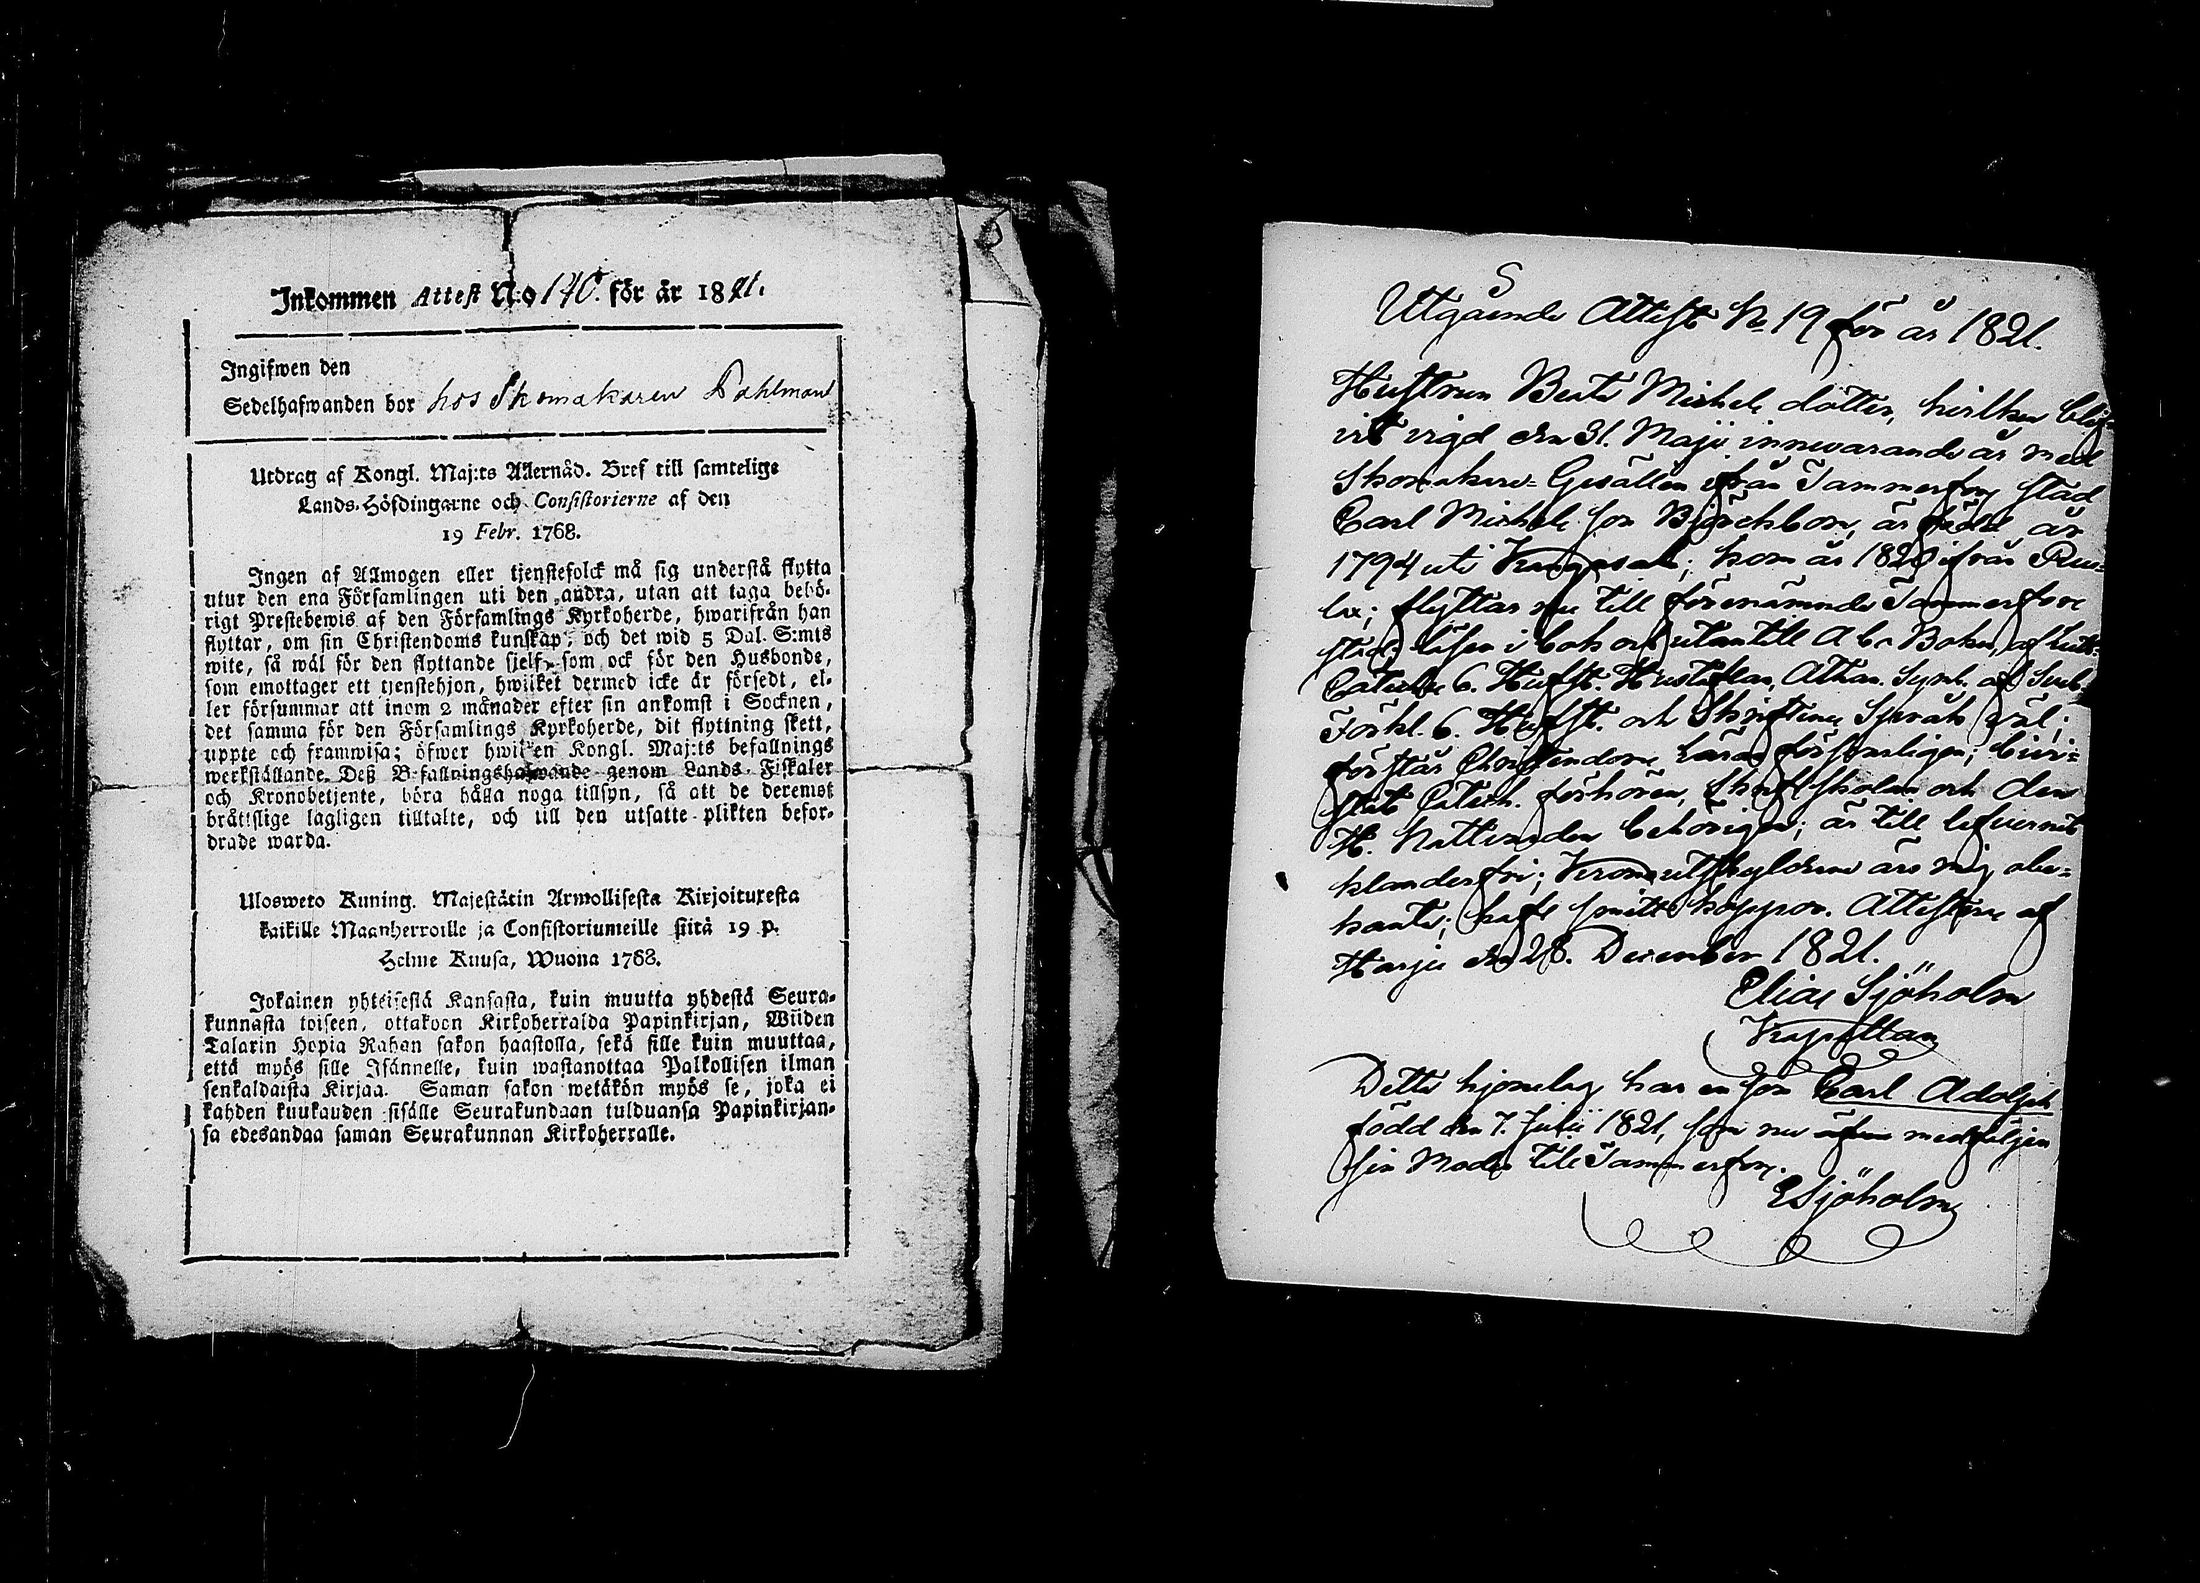 Inkommen Attest N:o 140. för år 1821.
Ingifwen den
Sedelhafwanden bor hos Skomakaren Dahlman
Utdrag af Kongl. Maj:ts Allernåd. Bref till samtelige
Lands-Höfdingarne och Consistorierne af den
19 Febr. 1768.
Ingen af Allmogen eller tjenstefolck må sig understå flytta
utur den ena Församlingen uti den andra, utan att taga behö-
rigt Prestebewis af den Församlings Kyrkoherde, hwarifrån han
flyttar, om sin Christendoms kunskap, och det wid 5 Dal. S:mts
wite, så wäl för den flyttande sjelf, som ock för den Husbonde,
som emottager ett tjenstehjon, hwilket dermed icke är försedt, el-
ler försummar att inom 2 månader efter sin ankomst i Socknen,
det samma för den Församlings Kyrkoherde, dit flyttning skett,
uppte och framwisa; öfwer hwilken Kongl. Maj:ts befallnings
werkställande Deß Befallningshafwande genom Lands-Fiskaler
och Kronobetjente, böra hålla noga tillsyn, så att de deremot
bråttslige lagligen tilltalte, och till den utsatte plikten befor-
drade warda.
Ulosweto Kuning. Majestätin Armollisesta Kirjoituxesta
kaikille Maanherroille ja Consistoriumeille siitä 19 p.
Helme Kuusa, Wuona 1768.
Jokainen yhteisestä Kansasta, kuin muutta yhdestä Seura-
kunnasta toiseen, ottakoon Kirkoherralda Papinkirjan, Wiiden
Talarin Hopia Rahan sakon haastolla, sekä sille kuin muuttaa,
että myös sille Isännelle, kuin wastanottaa Palkollisen ilman
senkaldaista Kirjaa. Saman sakon wetäkön myös se, joka ei
kahden kuukauden sisälle Seurakundaan tulduansa Papinkirjan-
sa edesandaa saman Seurakunnan Kirkoherralle.
Utgående Attest No 19 för år 1821.
Hustrun Beata Michels dotter, hvilken blif-
vit vigd den 31. Maji innevarande år med
Skomakare-Gesällen ifrån Tammerfors stad
Carl Michels son Björckbom, är född år
1794 uti Kangasala; kom år 1820 ifrån
flyttar nu till förenämnde Tammerfors
stad; läser i bok och utantill Abc Boken, af Luth.
Catech. 6. Hufst. Hustaflan, Athan. Symb. af Sveb.
Förkl. 6. Hufst. och Skriftenes Språk väl;
förstår Christendoms Läran försvarligen; bivi-
stat Catech. förhören, Skriftskolan och den
H. Nattvarden behörigen; är till lefvernet
klanderfri; Kronoutskylderne äro mig obe-
kante; haft smittkoppor. Attesterar af
Harju den 28. December 1821.
Elias Sjöholm
Kapellan
Detta hjonelag har en son Carl Adolph
född den 7. Julii 1821, som nu äfven medföljer
sin Moder till Tammerfors.
ESjöholm